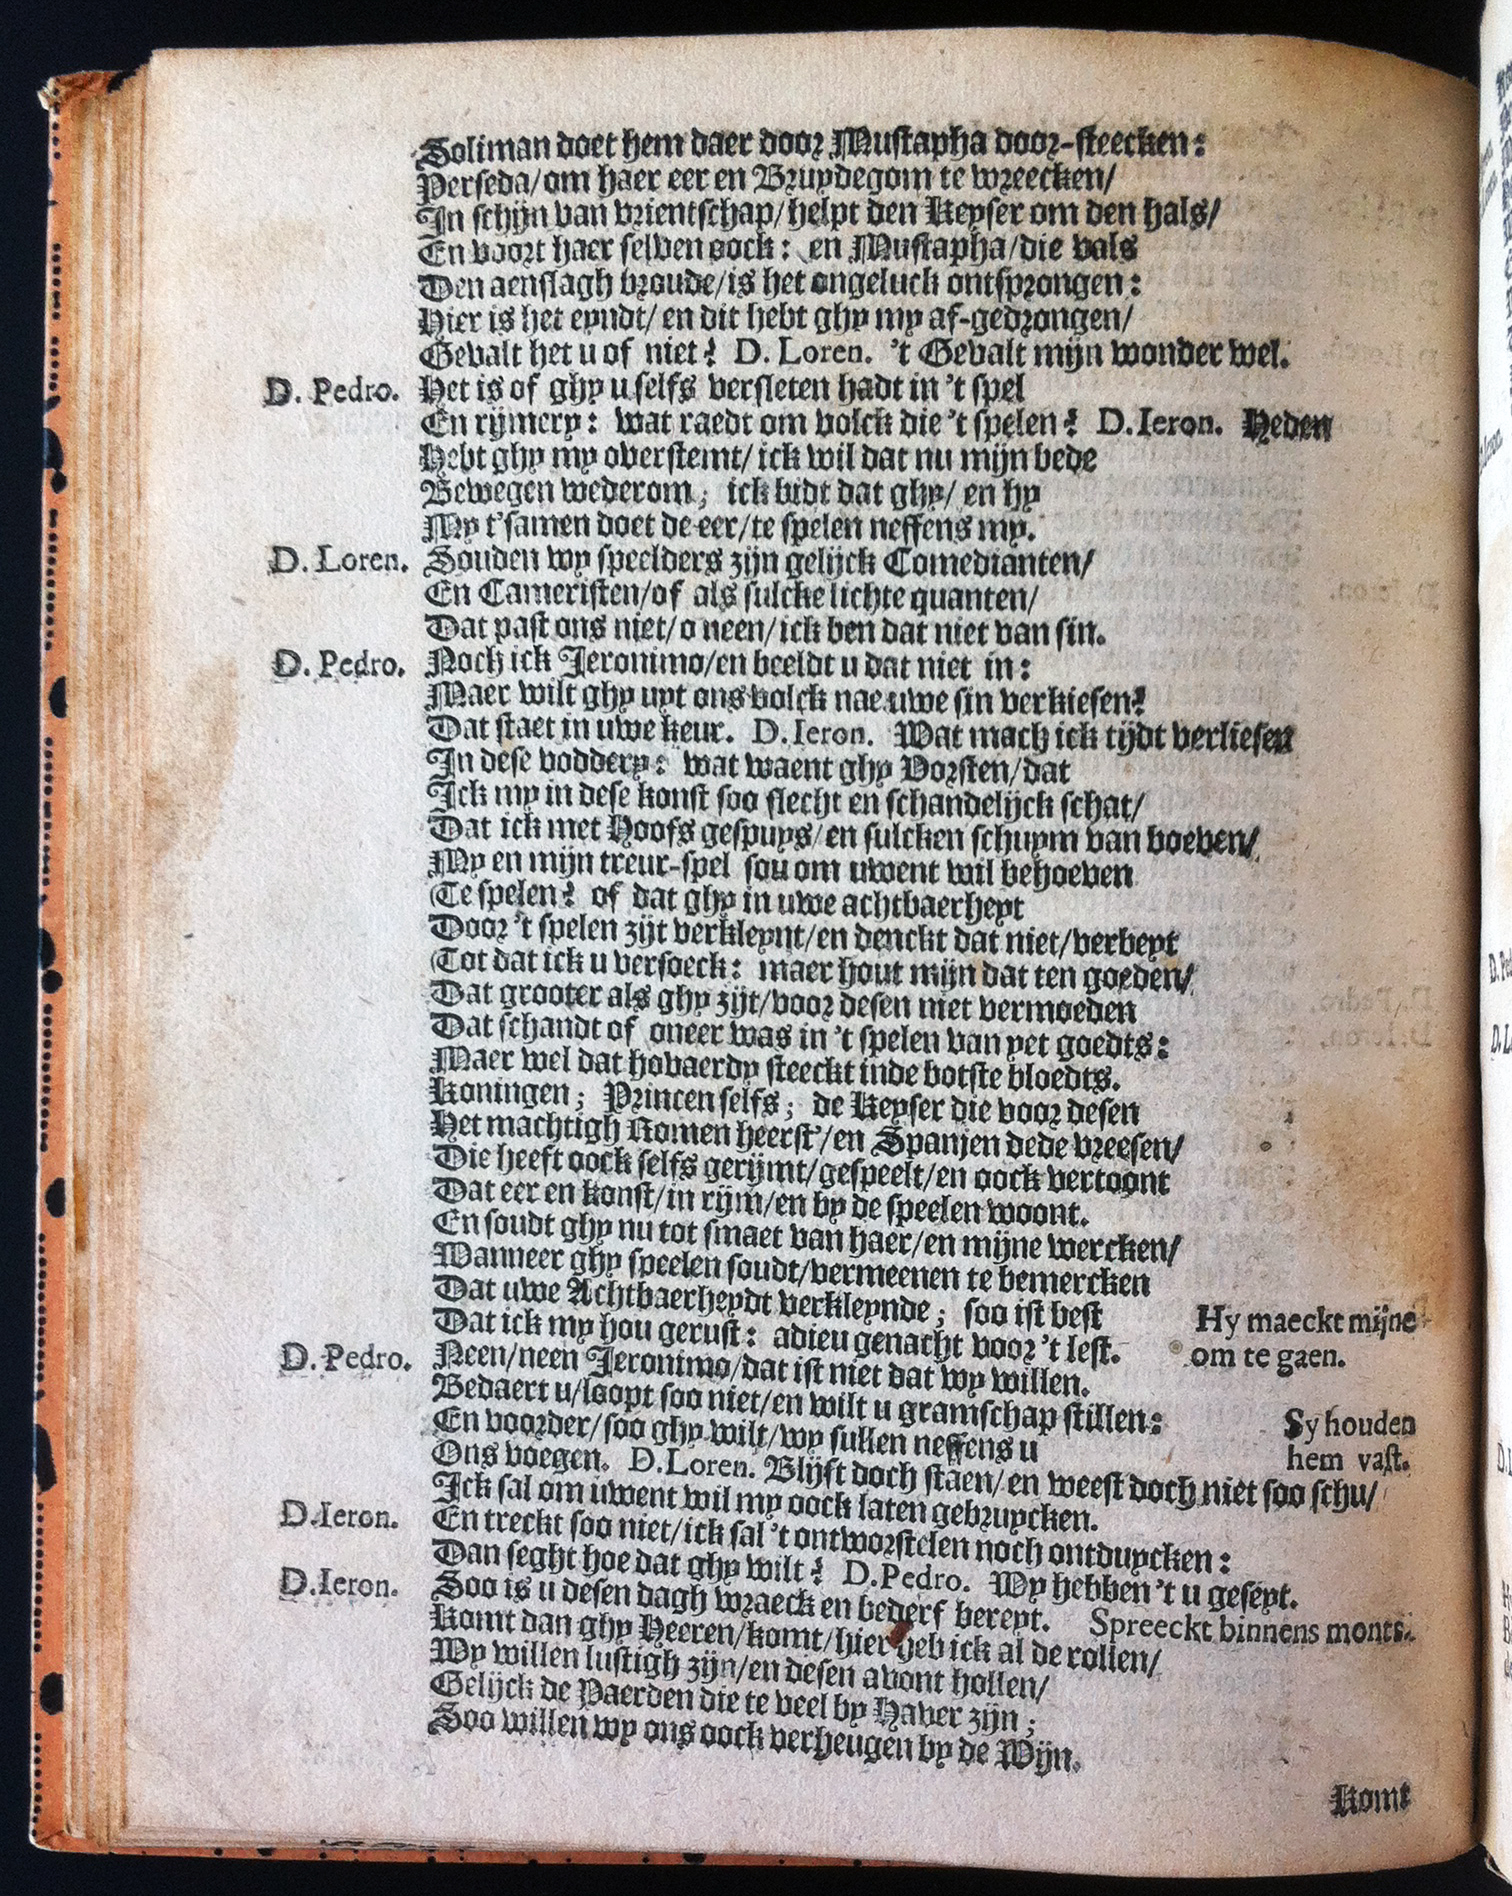 Soliman doet hem daer door Mustapha door-steecken:
Perseda/om haer eer en Bruydegom te wreecken/
In schijn van vrientschap/helpt den Keyser om den hals/
En voort haer selven oock: en Mustapha/die vals
Den aenslagh broude/is het ongeluck ontsprongen:
Hier is het eyndt/en dit hebt ghy my af-gedrongen/
Gevalt het u of niet? D. Loren. 't Gevalt mijn wonder wel.
D. Pedro. Het is of ghy u selfs versleten hadt in 't spel
En rijmery: wat raedt om volck die 't spelen? D.Ieron. Heden
Hebt ghy my overstemt/ick wil dat nu mijn bede
Bewegen wederom; ick bidt dat ghy/en hy
My t'samen doet de eer/te spelen neffens my.
D. Loren. Souden wy speelders zijn gelijck Comedianten/
En Cameristen/of als sulcke lichte quanten/
Dat past ons niet/o neen/ick ben dat niet van sin.
D. Pedro. Noch ick Jeronimo/en beeldt u dat niet in:
Maer wilt ghy uyt ons volck nae uwe sin verkiesen?
Dat staet in uwe keur. D.Ieron. Wat mach ick tijdt verliesen
In dese voddery: wat waent ghy Vorsten/dat
Ick my in dese konst soo slecht en schandelijck schat/
Dat ick met Hoofs gespuys/en sulcken schuym van boeven/
My en mijn treur-spel sou om uwent wil behoeven
Te spelen? of dat ghy in uwe achtbaerheyt
Door 't spelen zijt verkleynt/en denckt dat niet/verbeyt
Tot dat ick u versoeck: maer hout mijn dat ten goeden/
Dat grooter als ghy zijt/voor desen niet vermoeden
Dat schandt of oneer was in 't spelen van yet goedts:
Maer wel dat hovaerdy steeckt inde botste bloedts.
Koningen; Princen selfs; de Keyser die voor desen
Het machtigh Romen heerst'/en Spanjen dede vreesen/
Die heeft oock selfs gerijmt/gespeelt/en oock vertoont
Dat eer en konst/in rijm/en by de speelen woont.
En soudt ghy nu tot smaet van haer/en mijne wercken/
Wanneer ghy speelen soudt/vermeenen te bemercken
Dat uwe Achtbaerheydt verkleynde; soo ist best Hy maeckt mijne
Dat ick my hou gerust: adieu genacht voor 't lest. om te gaen.
D. Pedro. Neen/neen Jeronimo/dat ist niet dat wy willen.
Bedaert u/loopt soo niet/en wilt u gramschap stillen: Sy houden
En voorder/soo ghy wilt/wy sullen neffens u hem vast.
Ons voegen. D.Loren. Blijft doch staen/en weest doch niet soo schu/
Ick sal om uwent wil my oock laten gebruycken.
D.Ieron. En treckt soo niet/ick sal 't ontworstelen noch ontduycken:
Dan seght hoe dat ghy wilt? D.Pedro. Wy hebben 't u geseyt.
D.Ieron. Soo is u desen dagh wraeck en bederf bereyt. Spreeckt binnens monts.
Komt dan ghy Heeren/komt/hier heb ick al de rollen/
Wy willen lustigh zijn/en desen avont hollen/
Gelijck de Paerden die te veel by Haver zijn;
Soo willen wy ons oock verheugen by de Wijn.
Komt